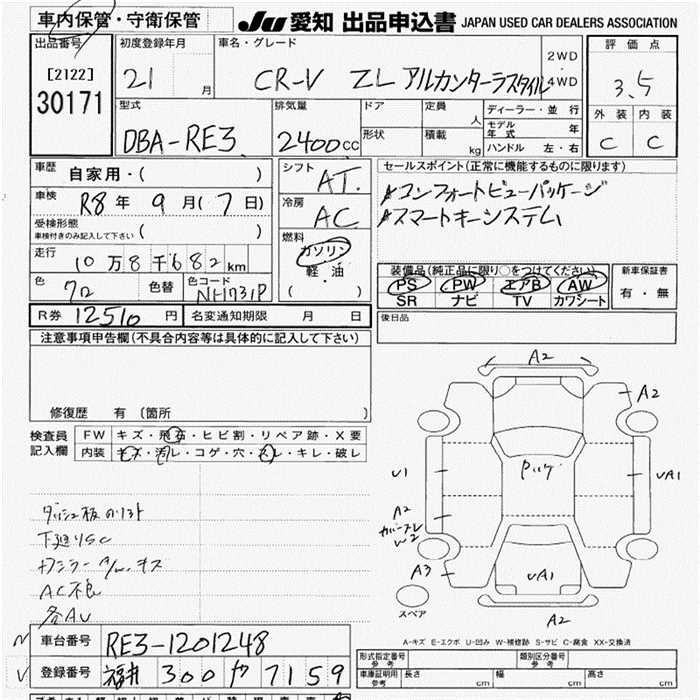 車内保管・守衛保管
JU 愛知 出品申込書 JAPAN USED CAR DEALERS ASSOCIATION
出品番号 初度登録年月 車名・グレード 評価点
[2122] 21 月 CR-V ZL アルカンターラスタイル 2WD・4WD 3.5
30171
型式 排気量 ドア 定員 人 ディーラー・並行 外装 内装
DBA-RE3 2400cc 形状 積載 kg モデル年式 年 C C
ハンドル 左・右
車歴 自家用・( ) シフト AT. セールスポイント(正常に機能するものに限ります)
車検 R8年 9月(7日) 冷房 AC コンフォートビューパッケージ
受検形態 ( ) スマートキーシステム
車検付きのみ記入して下さい
燃料
走行 10万8千682km ガソリン 装備品(純正品に限り○をつけてください) 新車保証書
軽・油 PS PW エアB AW 有・無
色 クロ 色替 色コード NH731P ( ) SR ナビ TV カワシート
R券 12510円 名変通知期限 月 日 後日品
注意事項申告欄(不具合内容等は具体的に記入して下さい)
修復歴 有 (箇所 )
検査員記入欄 FW キズ・飛石・ヒビ割・リペア跡・X要
内装 キズ・汚レ・コゲ・穴・スレ・キレ・破レ
下廻りSC
AC不良
各AU
A2
A2
U1
UA1
A2
W2
A3
UA1
A2
スペア
A-キズ E-エクボ U-凹み W-補修跡 S-サビ C-腐食 XX-交換済
車台番号 RE3-1201248
登録番号 福井 300 や 7159
形式指定番号 参考 類別区分番号 参考
車庫証明用 参考 長さ cm 幅 cm 高さ cm